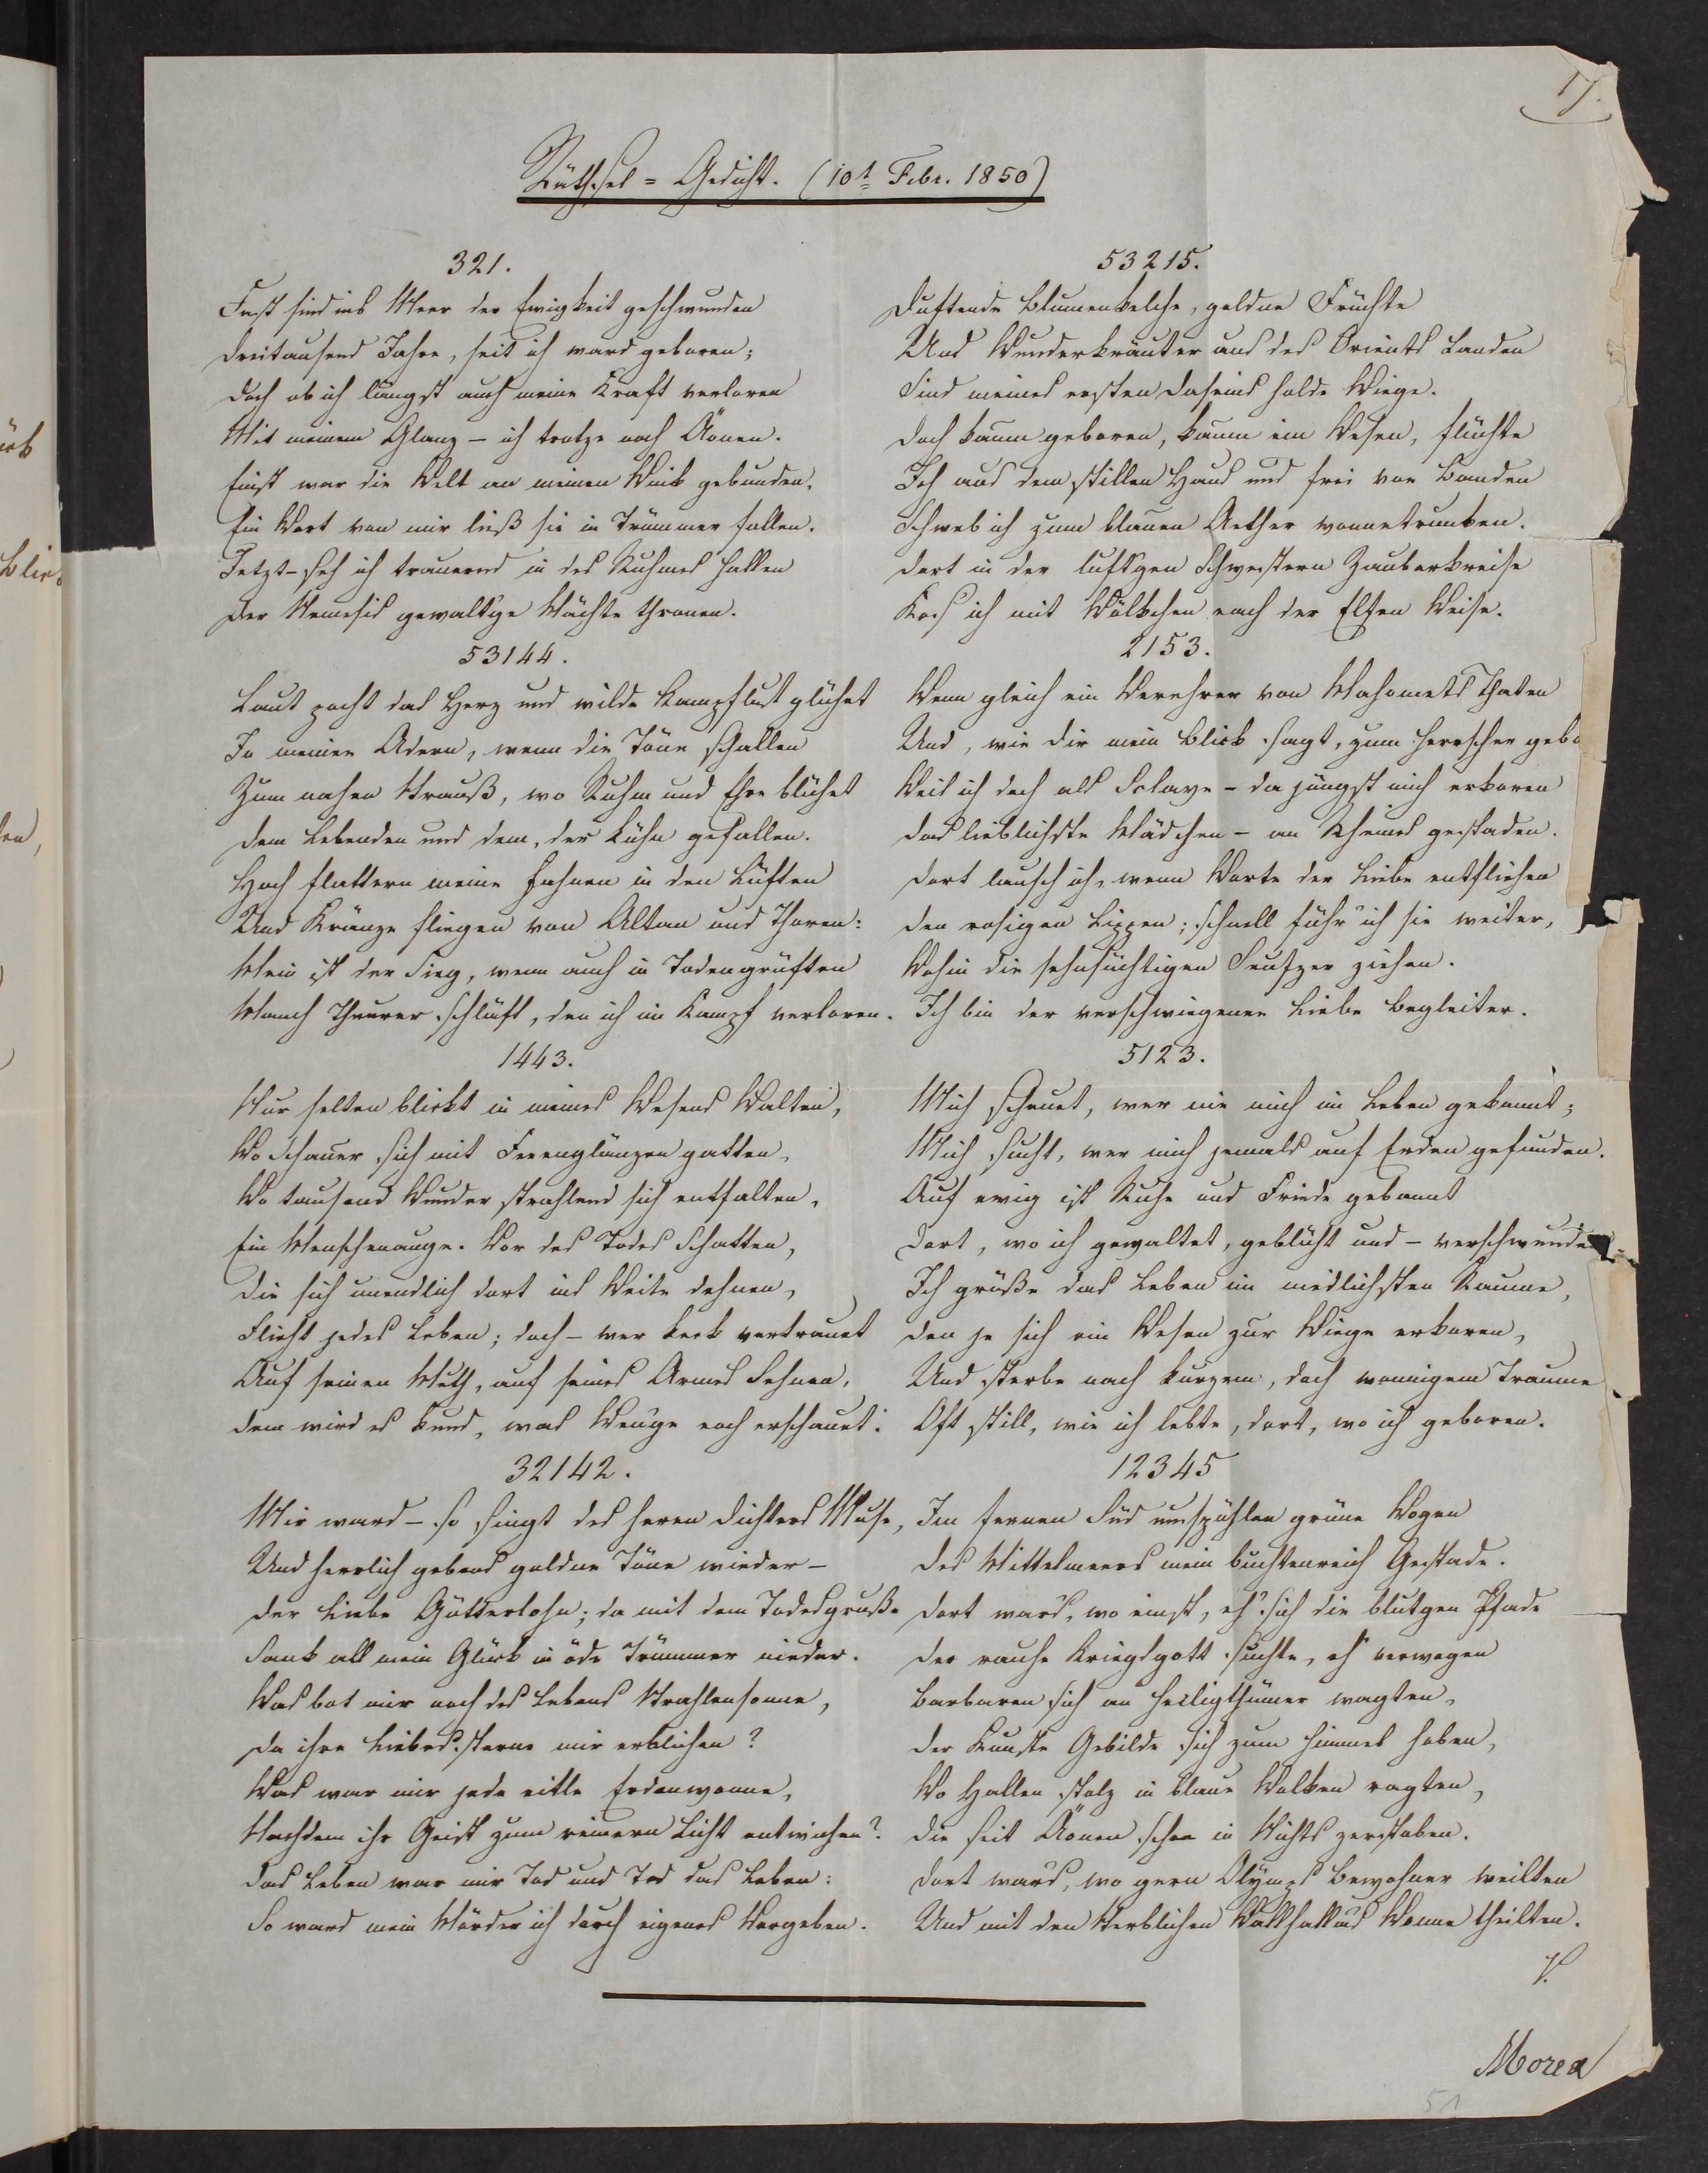 17.
Räthsel = Gedicht. (10t Febr. 1850)
321.
Fast sind ins Meer der Ewigkeit geschwunden
Dreitausend Jahre, seit ich ward geboren;
Doch ob ich längst auch meine Kraft verloren
Mit meinem Glanz – ich trotze noch Äonen.
Einst war die Welt an meinen Wink gebunden,
Ein Wort von mir ließ sie in Trümmer fallen.
Jetzt – seh ich trauernd in des Ruhmes Hallen
Der Nemesis gewalt'ge Mächte thronen.
53144.
Laut pocht das Herz und wilde Kampflust glühet
In meinen Adern, wenn die Töne schallen
Zum nahen Strauß, wo Ruhm und Ehre blühet
Dem Lebenden und dem, der kühn gefallen.
Hoch flattern meine Fahnen in den Lüften
Und Kränze fliegen von Altan und Thoren:
Mein ist der Sieg, wenn auch in Todengrüften
Manch Theurer schläft, den ich im Kampf verloren.
1443.
Nur selten blickt in meines Wesens Walten,
Wo Schauer sich mit Feenglänzen gatten,
Wo tausend Wunder strahlend sich entfalten,
Ein Menschenauge. Vor des Todes Schatten,
Die sich unendlich dort ins Weite dehnen,
Flieht jedes Leben; doch – wer keck vertrauet
Auf seinen Muth, auf seines Armes Sehnen,
Dem wird es kund, was Wen'ge noch erschauet.
32142.
Mir ward – so singt des hehren Dichters Muse,
Und herrlich gebens goldne Töne wieder –
Der Liebe Götterlohn; da mit dem Todesgruße
Sank all mein Glück in öde Trümmer nieder.
Was bot mir noch des Lebens Strahlensonne,
Da ihre Liebessterne mir erblichen?
Was war mir jede eitle Erdenwonne,
Nachdem ihr Geist zum reinern Licht entwichen?
Das Leben war mir Tod und Tod das Leben:
So ward mein Mörder ich durch eigenes Vergeben.
53215.
Duftende Blumenkelche, goldne Früchte
Und Wunderkräuter aus des Orients Landen
Sind meines ersten Daseins holde Wiege.
Doch kaum geboren, kaum ein Wesen, flüchte
Ich aus dem stillen Haus und frei von Banden
Schweb ich zum blauen Aether wonnetrunken.
Dort in der luft'gen Schwestern Zauberkreise
Kos' ich mit Wölkchen nach der Elfen Weise.
2153.
Wenn gleich ein Verehrer von Mahomets Thaten
Und, wie dir mein Blick sagt, zum Herrscher gebo
Weil ich doch als Sclave – da jüngst mich erkoren
Das lieblichste Mädchen – an Rheines Gestaden.
Dort lausch ich, wenn Worte der Liebe entfliehen
Den rosigen Lippen; schnell führ' ich sie weiter,
Wohin die sehnsüchtigen Seufzer ziehen.
Ich bin der verschwiegenen Liebe Begleiter.
5123.
Mich scheuet, wer nie mich im Leben gekannt;
Mich sucht, wer mich jemals auf Erden gefunden.
Auf ewig ist Ruhe und Friede gebannt
Dort, wo ich gewaltet, geblüht und – verschwunden.
Ich grüße das Leben im niedlichsten Raume,
Den je sich ein Wesen zur Wiege erkoren,
Und sterbe nach kurzem, doch wonnigem Traume
Oft still, wie ich lebte, dort, wo ich geboren.
12345
Im fernen Süd umspühlen grüne Wogen
Des Mittelmeeres mein buchtenreich Gestade.
Dort war's, wo einst, eh' sich die blutgen Pfade
Der rauhe Kriegsgott suchte, eh' verwegen
Barbaren sich an Heiligthümer wagten,
Der Künste Gebilde sich zum Himmel hoben,
Wo Hallen stolz in blaue Wolken ragten,
Die seit Äonen schon in Nichts zerstoben.
Dort war's, wo gern Olymps Bewohner weilten
Und mit den Sterblichen Wallhalla's Wonne theilten.
Morea
51